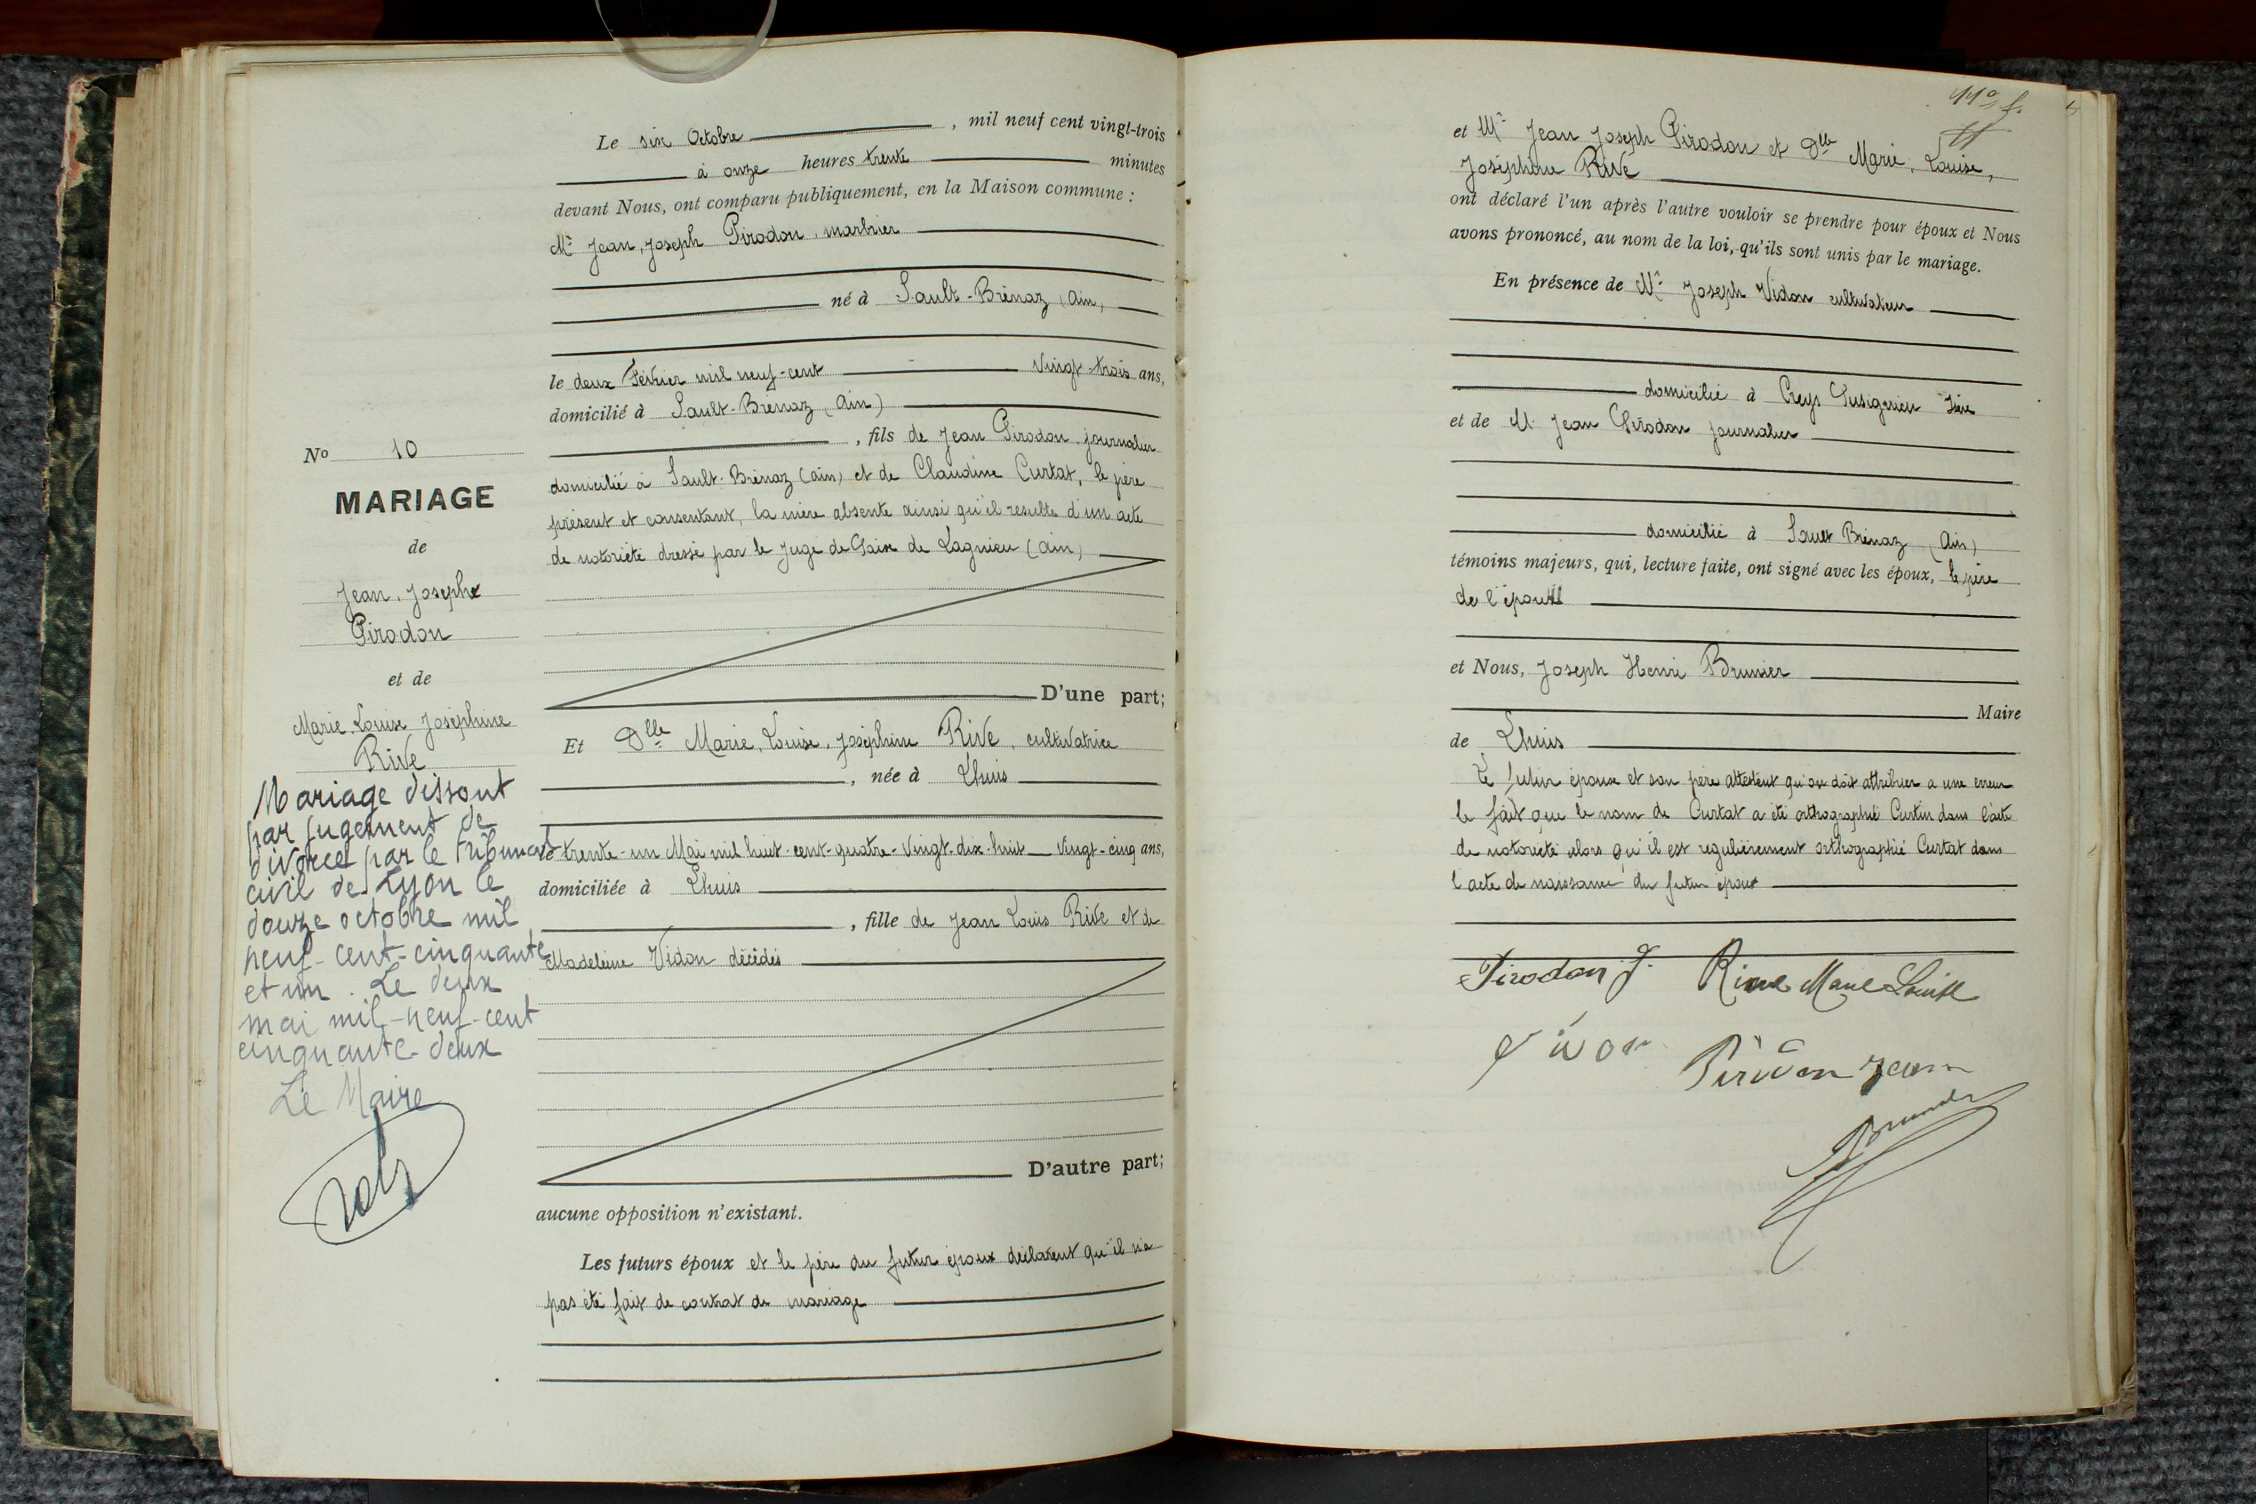 Le six Octobre, mil neuf cent vingt-trois
à onze heures trente minutes
devant Nous, ont comparu publiquement, en la Maison commune :
Mr Jean, Joseph Pirodon, marbrier
né à Sault-Brénaz (Ain)
le deux Février mil neuf-cent Vingt-trois ans,
domicilié à Sault-Brénaz (Ain)
, fils de Jean Pirodon, journalier
domicilié à Sault-Brénaz (Ain) et de Claudine Curtat, le père
présent et consentant, la mère absente ainsi qu'il resulte d'un acte
de notoriété dressé par le Juge de Paix de Lagnieu (Ain)
D'une part;
Et Dlle Marie, Louise, Joséphine Rive, cultivatrice
, née à Lhuis
le trente-un Mai mil huit-cent-quatre-vingt-dix-huit Vingt-cinq ans,
domiciliée à Lhuis
, fille de Jean Louis Rive et de
Madeleine Vidon décédés
D'autre part;
aucune opposition n'existant.
Les futurs époux et le père du futur époux déclarent qu'il n'a
pas été fait de contrat de mariage
No 10
MARIAGE
de
Jean, Joseph
Pirodon
et de
Marie Louise Joséphine
Rive
Mariage dissout
par jugement de
divorce par le tribunal
civil de Lyon le
douze octobre mil
neuf-cent-cinquante
et un. Le deux
mai mil-neuf-cent
cinquante-deux
Le Maire
et Mr Jean Joseph Pirodon et Dlle Marie, Louise,
Joséphine Rive
ont déclaré l'un après l'autre vouloir se prendre pour époux et Nous
avons prononcé, au nom de la loi, qu'ils sont unis par le mariage.
En présence de Mr Joseph Vidon cultivateur
domicilié à Creys Pusignieu Isère
et de M. Jean Pirodon journalier
domicilié à Sault Brénaz (Ain)
témoins majeurs, qui, lecture faite, ont signé avec les époux, le père
de l'époux
et Nous, Joseph Henri Brunier
Maire
de Lhuis
Le futur époux et son père attestent qu'on doit attribuer a une erreur
le fait que le nom de Curtat a été orthographié Curtin dans l'acte
de notoriété alors qu'il est regulièrement orthographié Curtat dans
l'acte de naissance du futur époux
Pirodon J. Rive Marie Louise
Vidon Pirodon Jean
Brunier